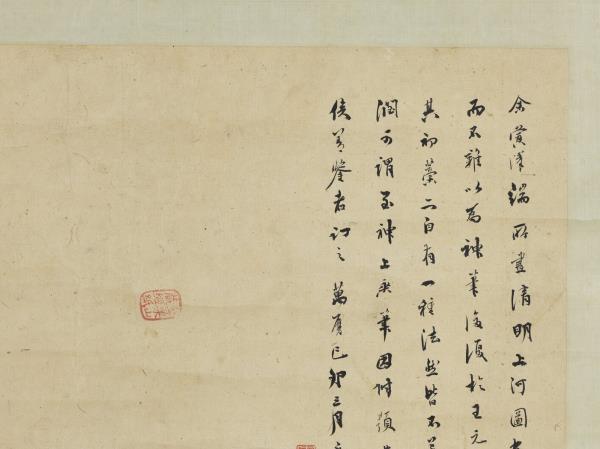 余黄澤端所畫清明上河圖
而不難以為神筆後復於王元
其初藁亦自有一種法然皆不
潤可謂至神上乘筆因附
俟善鑒者訂之 萬曆己卯三月